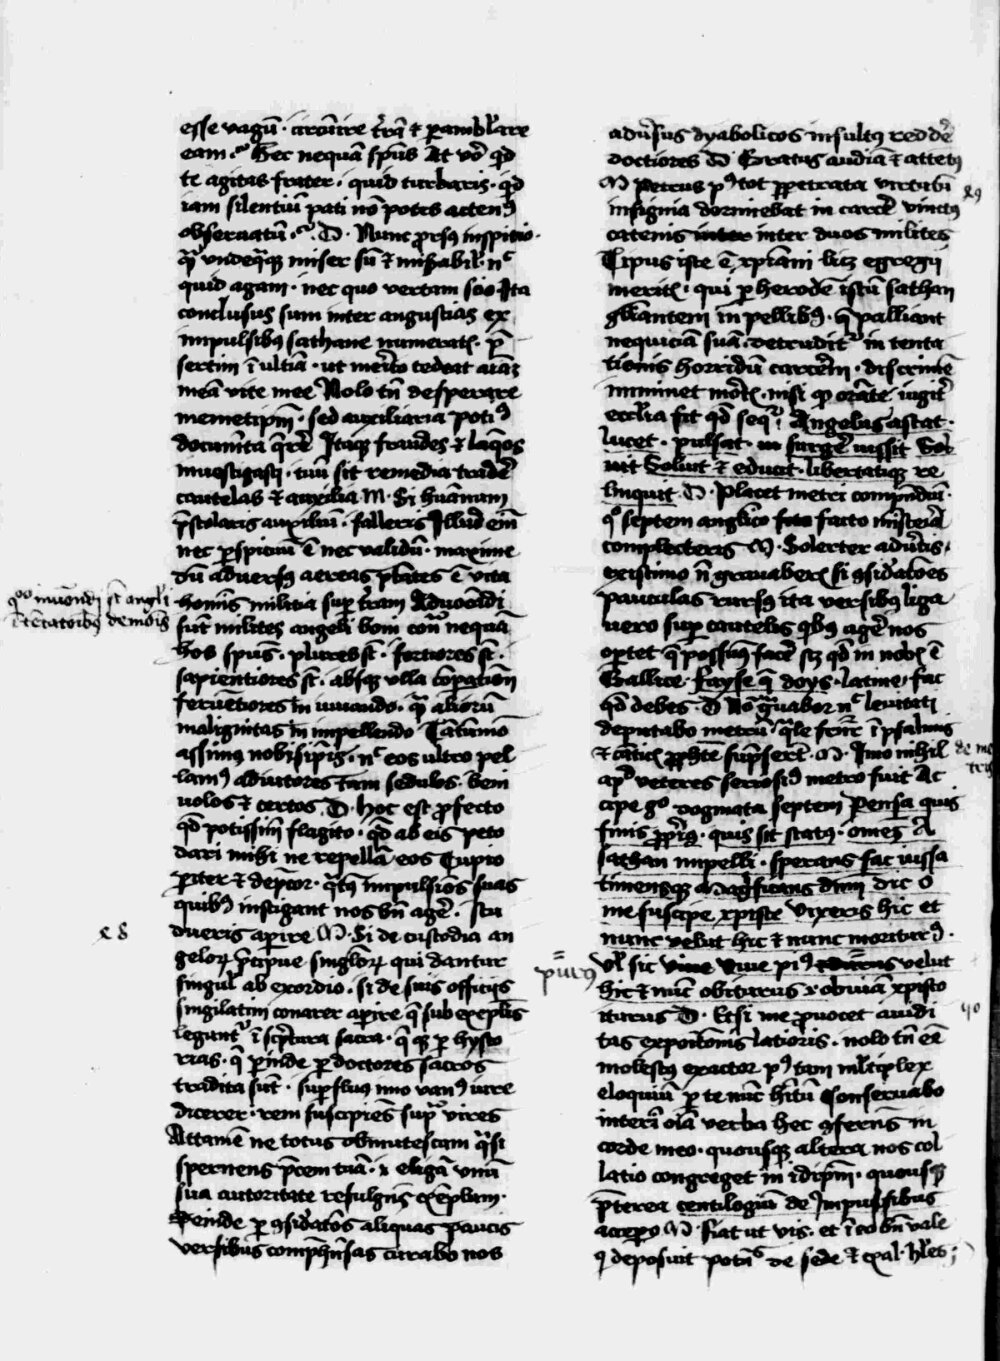 esse vagū · circūire t̄rā ⁊ ꝑambl̄are
eam · Hec nequā sp̄us At vō qd
te agitas frater · quid turbaris · qd
iam silentiū pati nō potes actenꝰ
obseruatū · D · Nunc ꝓrsꝰ inspitio ·
qꝫ vndeq̄qꝫ miser sū ⁊ misabil · nc̄
quid agam · nec quo vertam scio Ita
conclusus sum inter angustias ex
impulsibꝰ sathane numeratꝭ · p̄
sertim ī ultiā · ut merito tedeat aīaꝫ
meā vite mee Nolo tn̄ desperare
memetipm̄ · sed auxiliaria potiꝰ
documta q̄rē Itaqꝫ fraudes ⁊ laq̄os
inuestigasti · tuū sit remedia tradē
cautelas ⁊ auxilia M · Si huānum
p̄stolaris auxiliū · falleris Illud em̄
nec ꝑspicuū ē nec validū · maxime
dū aduersꝰ aereas ptātes ē vita
homīs militia suꝑ t̄ram Aduocādi
sūt milites angeli boni cont̄ nequā
hos spūs · plures st̄ · fortiores st̄ ·
sapientiores st̄ · absqꝫ ulla cōꝑation̄
feruētiores in iuuando · qꝫ alioꝝ
malignitas in impellendo
assimus nobisip̄is · nc̄ eos ultro pel
lamꝰ adiutores tam sedulos · beni
uolos ⁊ certos D · hoc est ꝓfecto
qd̄ potissim̄ flagito · qd̄ ab eis peto
dari mihi ne repellā eos Cupio
ꝑiter ⁊ dep̄cor · q̄tꝰ impulsiōs suas
quibꝰ instigant nos bn̄ agē · stu
dueris aꝑire M · Si de custodia an
geloꝝ p̄cipue singloꝝ qui dantur
singul̄ ab exordio · si de suis officijs
singilatim conarer aꝑire q̄ sub exēplis
leguntᷣ ī sc̄ptura sacra · q̄ qꝫ ꝑ hysto
rias · q̄ ꝑinde ꝑ doctores sacros
tradita sūt · suꝑfluꝰ imo vanꝰ iure
dicerer · rem suscipiēs supᷣ vires
Attamē ne totus obmutescam q̄si
spernens p̄cem tuā · eligā vnū
sua autoritate refulgēs exēplum ·
Deinde ꝑ ꝯsid̄atōs aliquas paucis
versibus comp̄hn̄sas curabo nos
quō inuōndi st̄ angeli
ī tētatōibꝫ demōis
x8
adūsus dyabolicos insultꝰ reddē
doctiores D · Gratus audiā ⁊ attetꝰ
M Petrus pꝰ tot ꝑpetrata virtutū
insignia dormiebat in carcē vinctꝰ
catenis inter inter duos milites
Tipus iste ē xp̄iam huiꝰ egregij
meritꝭ · qui ꝑ herodē istū sathan
gl̄iantem in pellibꝰ · q̄ palliant
nequiciam suā · detruditᷣ in tenta
tionis horridū carcēm · discrimē
imminet mortꝭ · nisi qꝫ orāte iugit̄
eccl̄ia fit qd̄ seqᷣ · Angelus astat ·
lucet · pulsat · surgē iussit Sol
uit Soluit ⁊ educit · libertatiqꝫ re
linquit D · Placet metri compendiū ·
qͦ septem anglico facto misteria
complecteris M · Solerter adūtis ·
existimo n̄ grauaberꝭ si ꝯsid̄atōes
pauculas rursꝰ ita versibus liga
uero suꝑ cautelis qbꝰ agē nos
oꝑtet q̄ possimꝰ facē scꝫ qd̄ in nobꝭ ē
Gallice · Fayse q̄ doys · latine · fac
qd̄ debes · D Nō grauabor nc̄ leuitati
deputabo metrū · q̄le ī psalmis
⁊ cāticꝭ ꝓphē M · Imo nihil
apᵈ veteres seriosiꝰ metro fuit Ac
cipe gͦ dogmata septem Pensa quis
finis ꝓprius · quis sit status · omēs A
sathan impelli · sperans fac iussa
timensqꝫ Magnificans dnm̄ dic o
me suscipe xpiste Vixeris hic et
nunc velut hic ⁊ nunc moriturꝰ ·
Vl̄ sic viue viue piꝰ velut
hic ⁊ nūc obiturus ⁊ obuiā xpisto
iturus D · Etsi me ꝓuocet auidi
tas exponis latioris · nolo tn̄ eē
molestꝰ exactor pꝰ tam multiplex
eloquiū ꝑ te nūc hītū Conseruabo
interī oīa verba hec ꝯferens in
corde meo · quousqꝫ altera nos col
latio congreget in idipm̄ · quousqꝫ
p̄terea centilogiū de Impulsibus
accipo M · Fiat ut vis · et ī eo bn̄ vale
qͥ deposuit potēs de sede ⁊ exal · hl̄es
x9
de me
tris